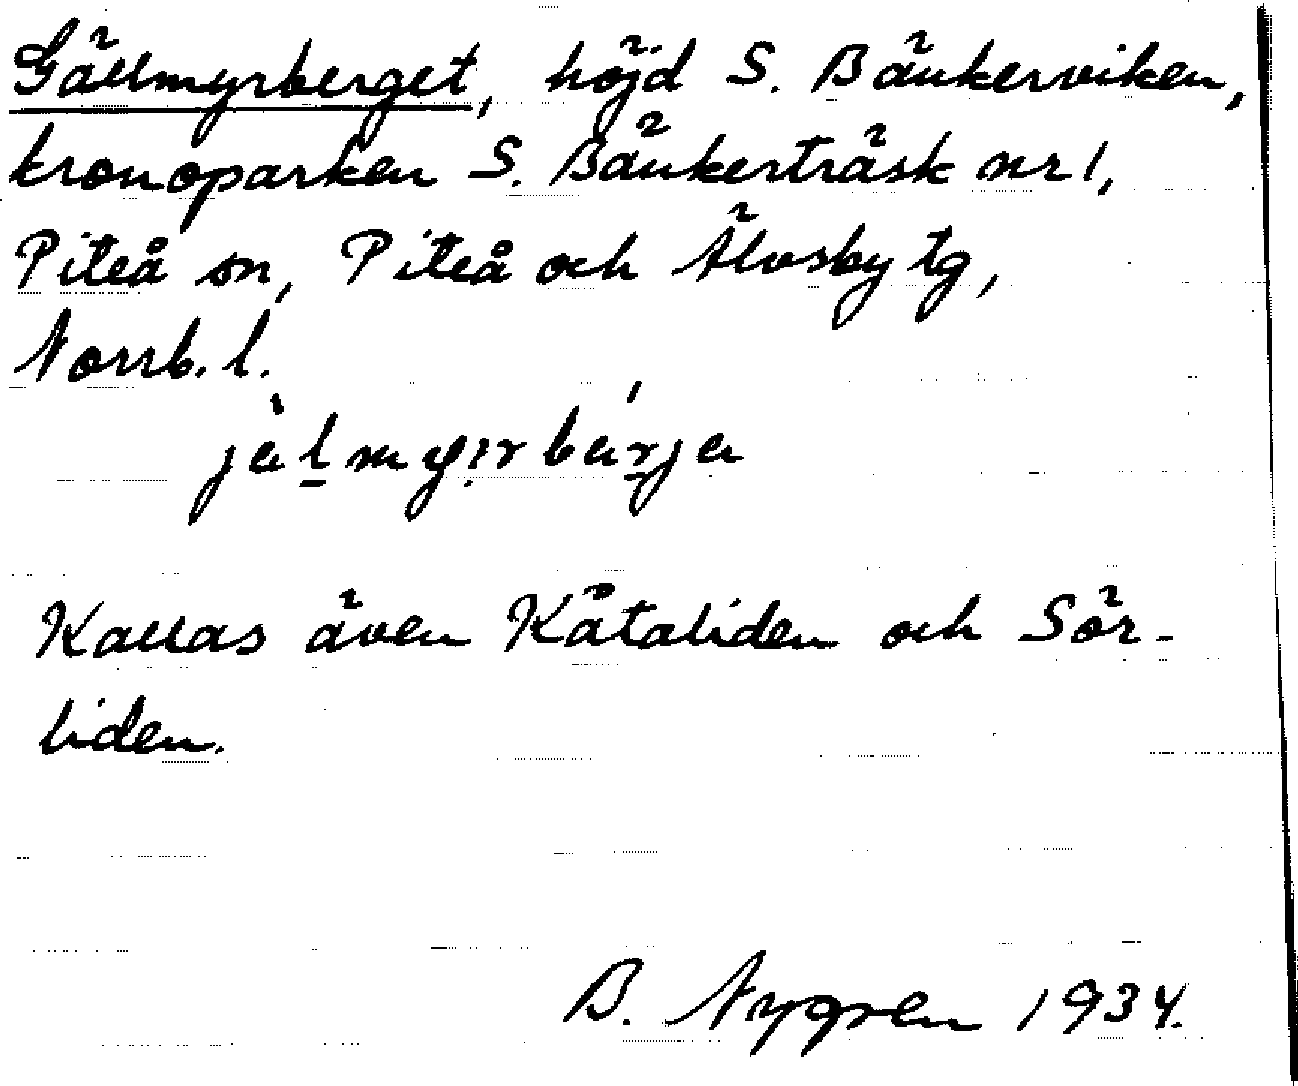 Gällmyrberget, höjd S. Bänkerviken,
kronoparken S. Bänkerträsk nr 1,
Piteå sn, Piteå och Älvsby tg,
Norrb. l.
Kallas även Kåtaliden och Sör-
liden.
B. Nygren 1934.